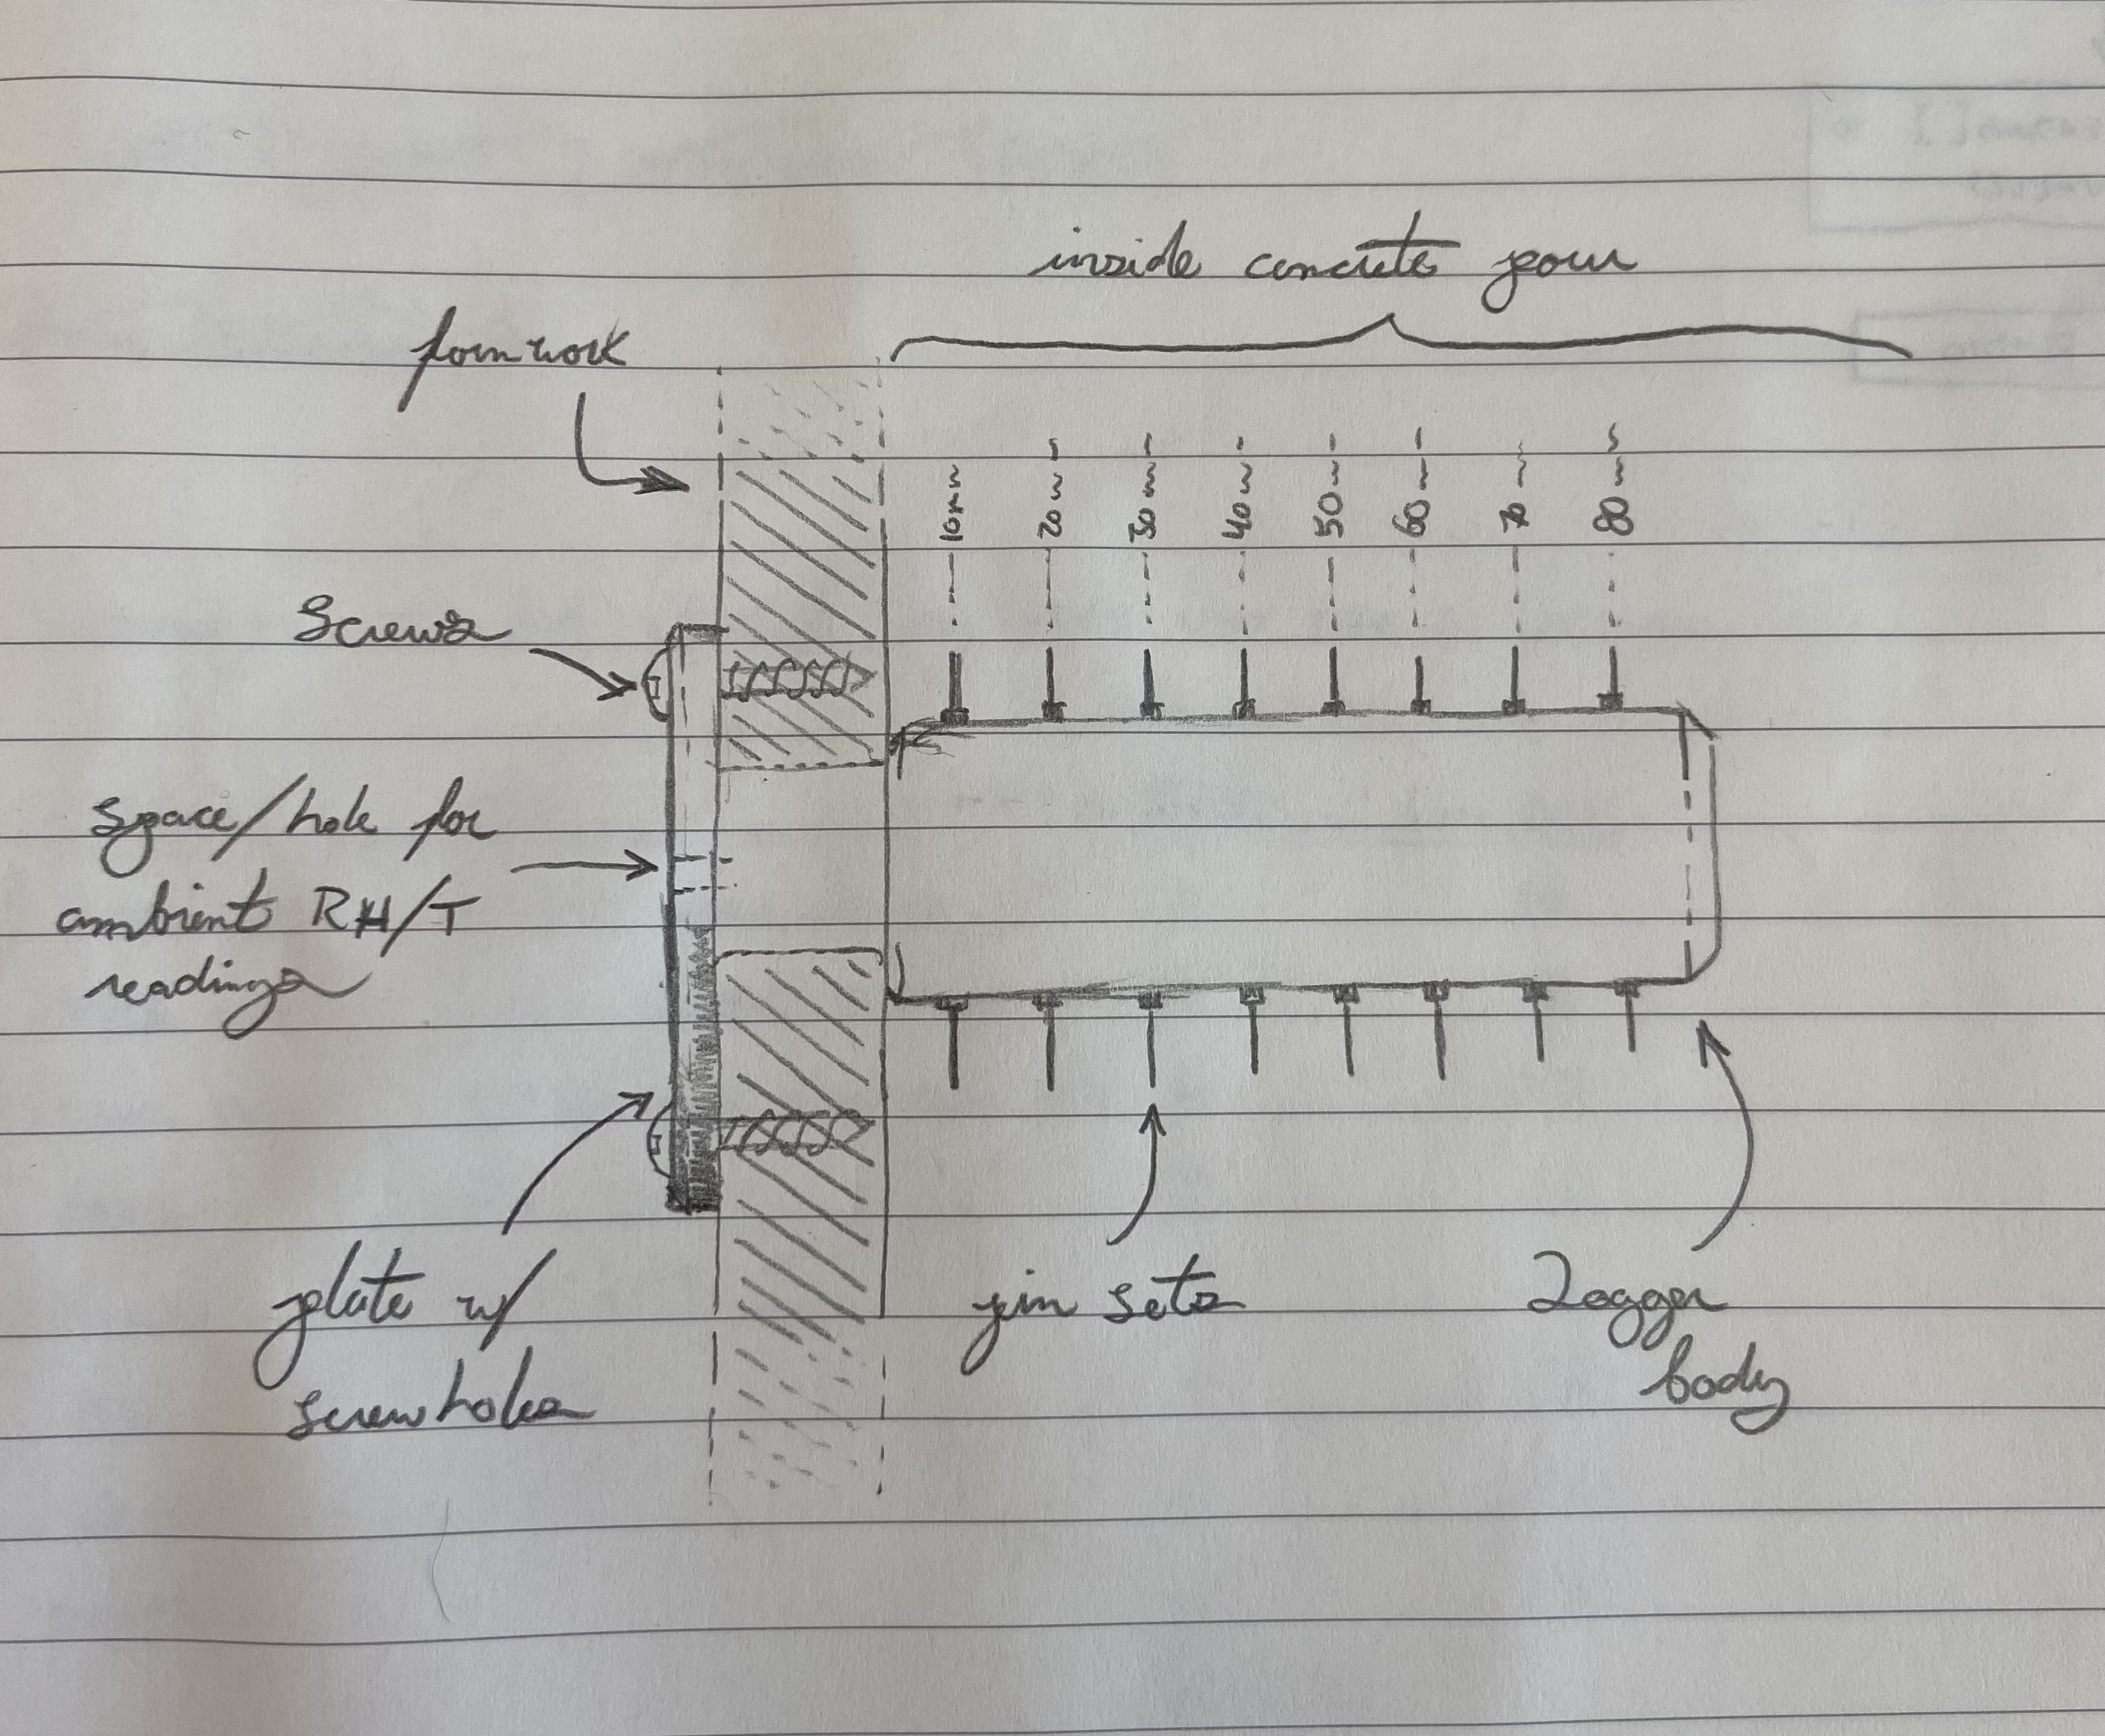 inside concrete pour
formwork
10mm
20mm
30mm
40mm
50mm
60mm
70mm
80mm
Screws
space/hole for
ambient RH/T
readings
plate w/
screwholes
pin sets
Logger
body